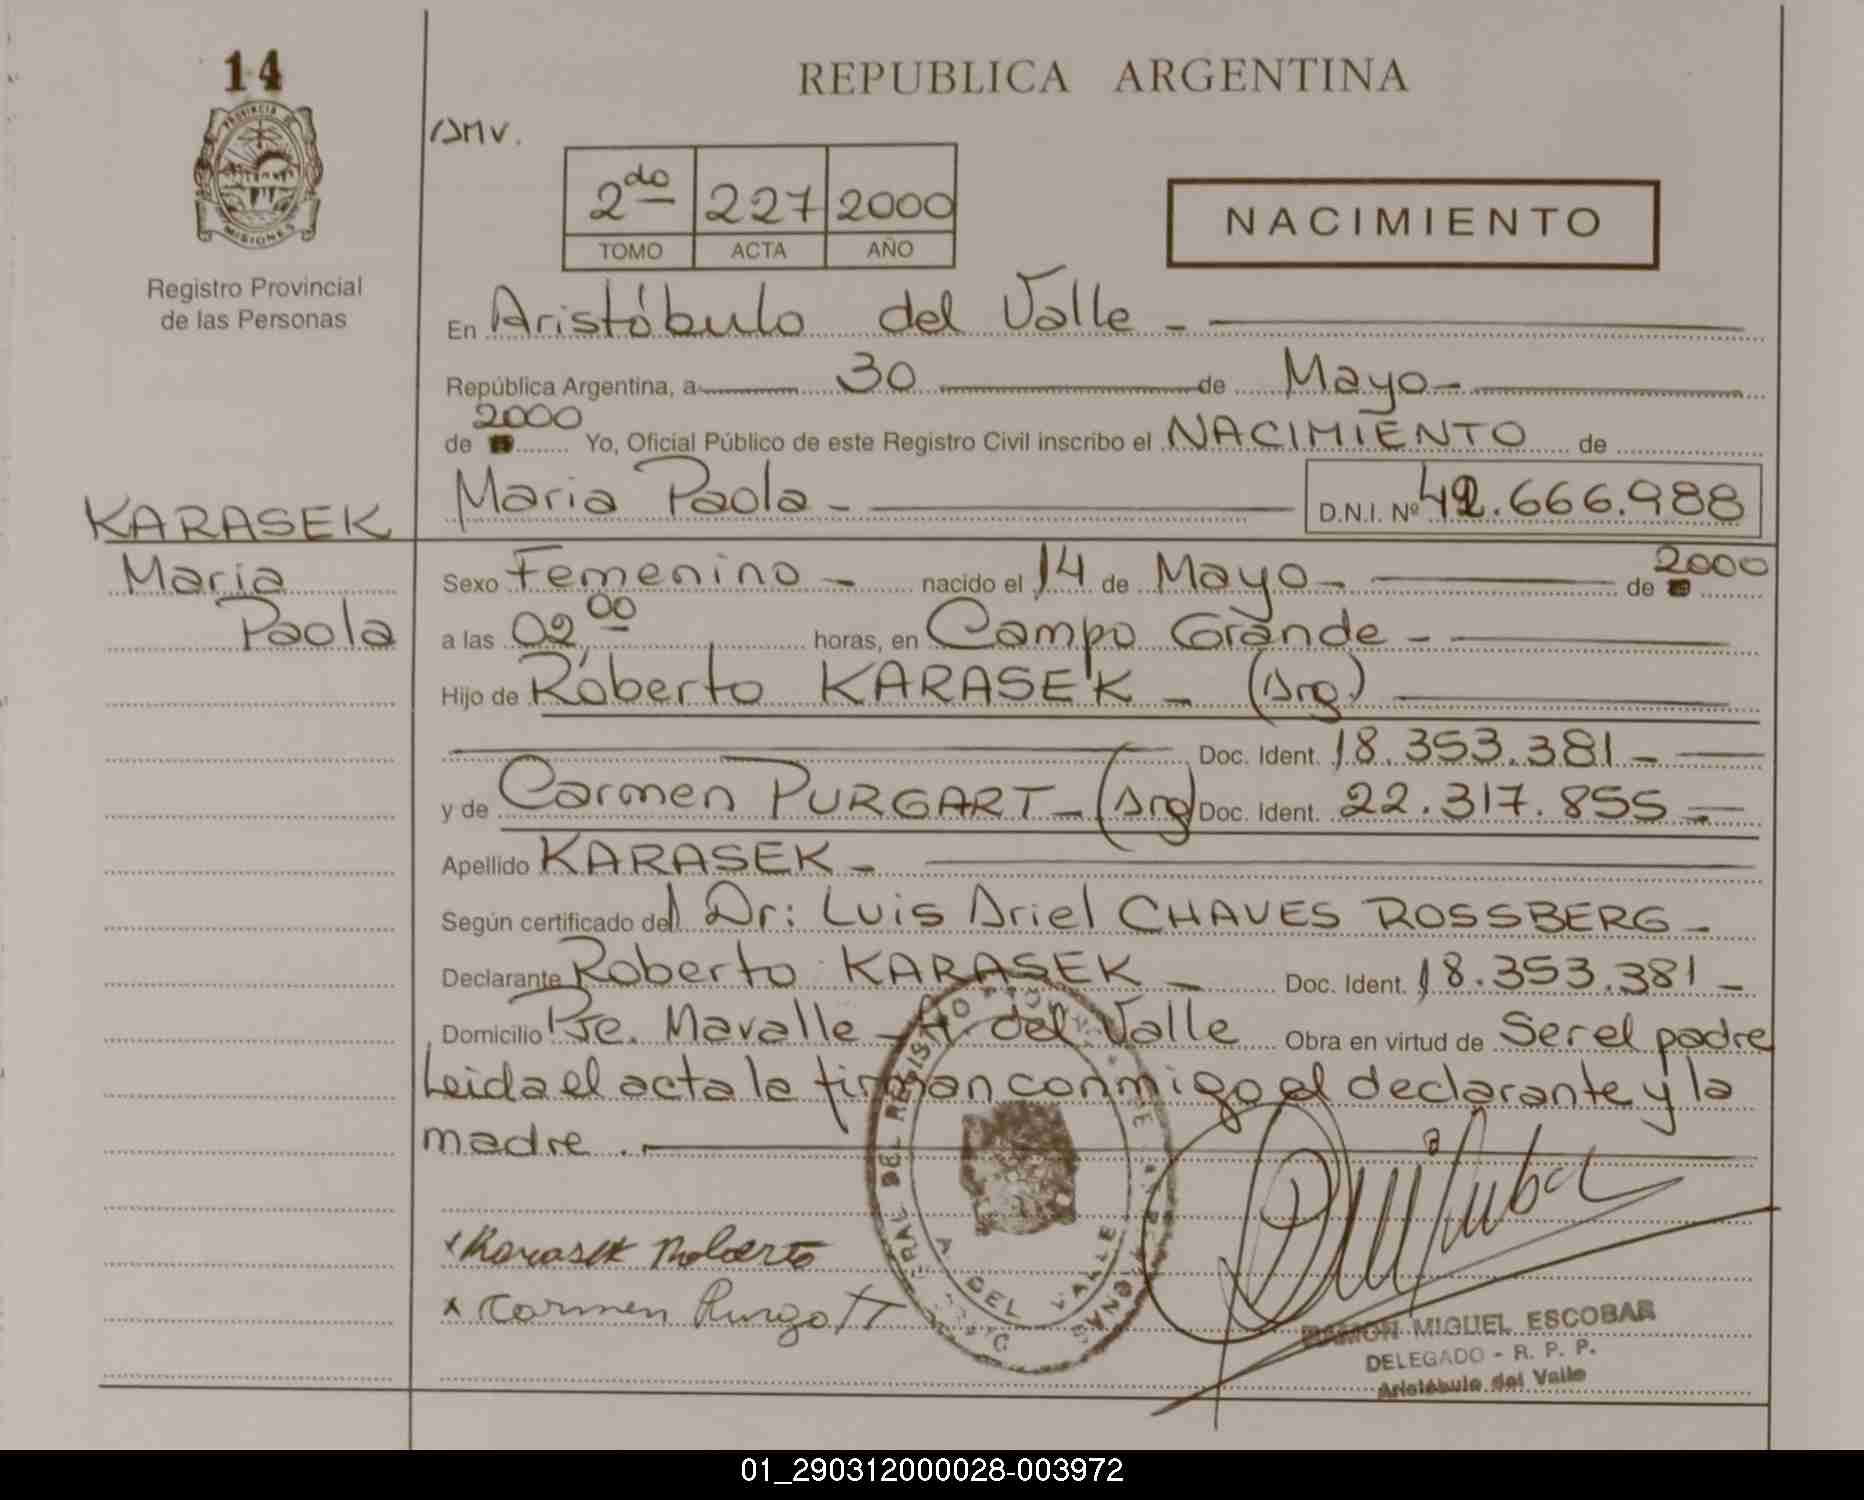 14
PROVINCIA DE
MISIONES
Registro Provincial
de las Personas
REPUBLICA ARGENTINA
2do 227 2000
TOMO ACTA AÑO
NACIMIENTO
En Aristóbulo del Valle -
República Argentina, a 30 de Mayo -
2000
de Yo, Oficial Público de este Registro Civil inscribo el NACIMIENTO de
Maria Paola - D.N.I. Nº 42.666.988
KARASEK
Maria
Paola
Sexo Femenino - nacido el 14 de Mayo - de 2000
a las 02,00 horas, en Campo Grande -
Hijo de Roberto KARASEK - (Arg)
Doc. Ident. 18.353.381 -
y de Carmen PURGART - (Arg) Doc. Ident. 22.317.855 -
Apellido KARASEK -
Según certificado del Dr: Luis Ariel CHAVES ROSSBERG -
Declarante Roberto KARASEK - Doc. Ident. 18.353.381 -
Domicilio Pje. Mavalle - A. del Valle Obra en virtud de Ser el padre
Leida el acta la firman conmigo el declarante y la
madre .-
x Karasek Roberto
x Carmen Purgatt
DEL VALLE
RAMON MIGUEL ESCOBAR
DELEGADO - R. P. P.
Aristóbulo del Valle
01_290312000028-003972